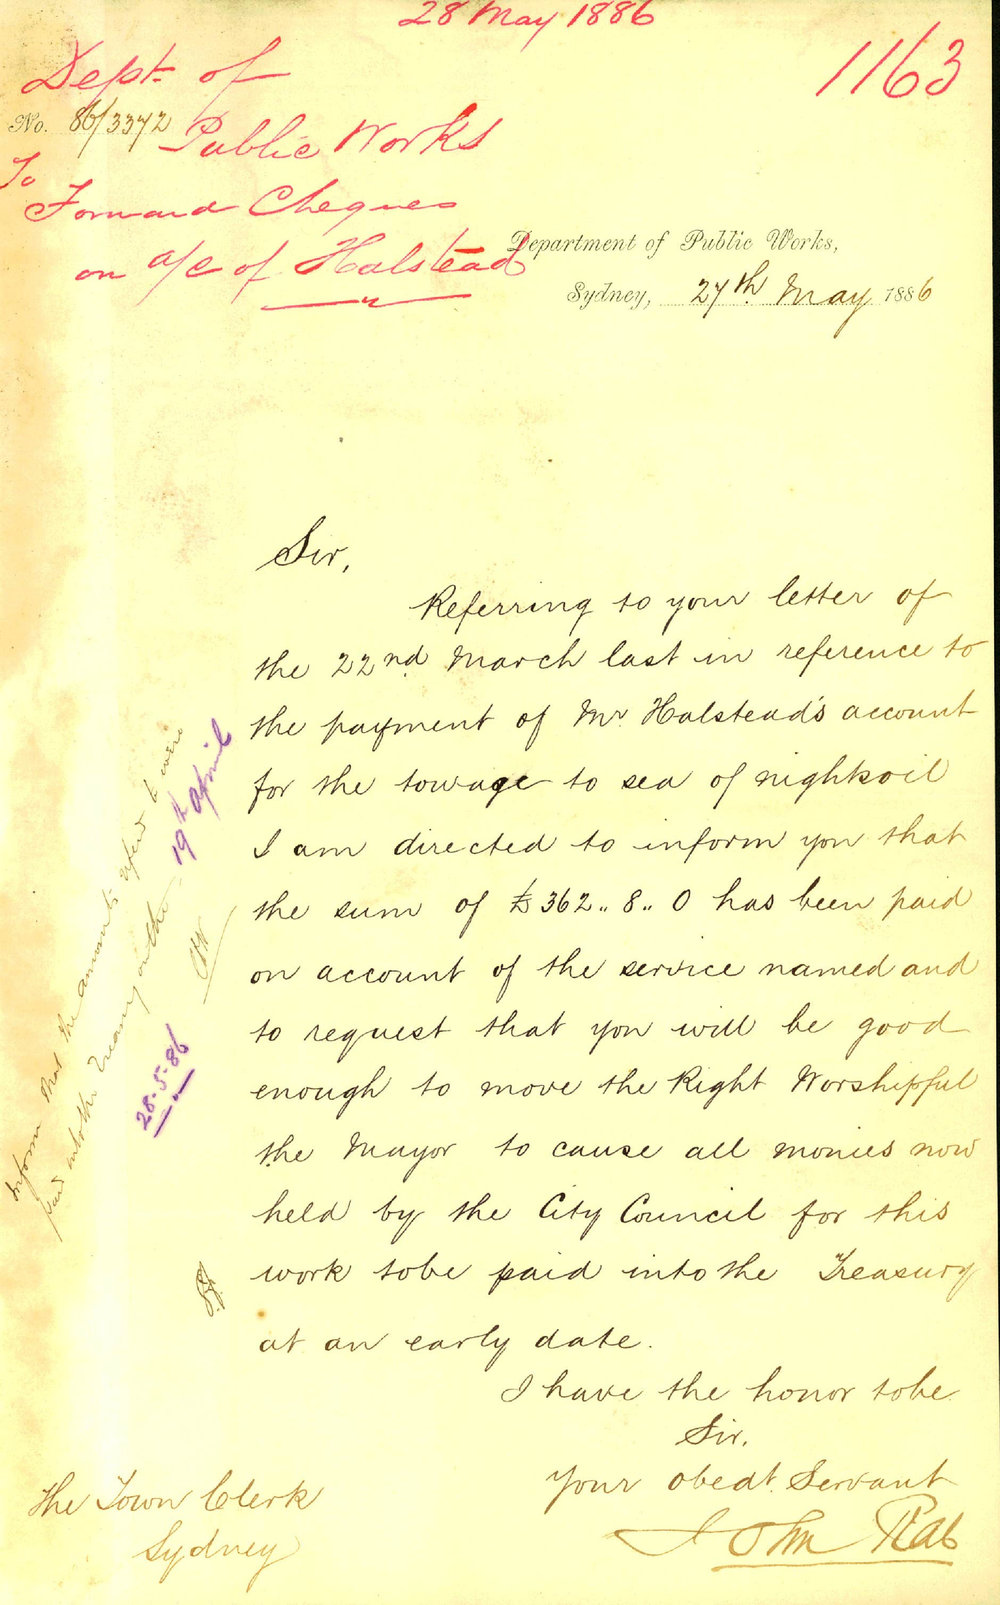 28 May 1886
1163
Dept. of
No. 86/3372
Public Works
To
Forward Cheques
on a/c of Halstead
Department of Public Works,
Sydney, 27th May 1886
Sir,
Referring to your letter of
the 22nd March last in reference to
the payment of Mr Halstead's account
for the towage to sea of nightsoil
I am directed to inform you that
the sum of £362..8..0 has been paid
on account of the service named and
to request that you will be good
enough to move the Right Worshipful
the Mayor to cause all monies now
held by the City Council for this
work tobe paid into the Treasury
at an early date.
I have the honor tobe
Sir,
Your obedt. Servant
John Rae
The Town Clerk
Sydney
Inform that the amounts were
paid into the Treasury on the 19th April
28.5.86